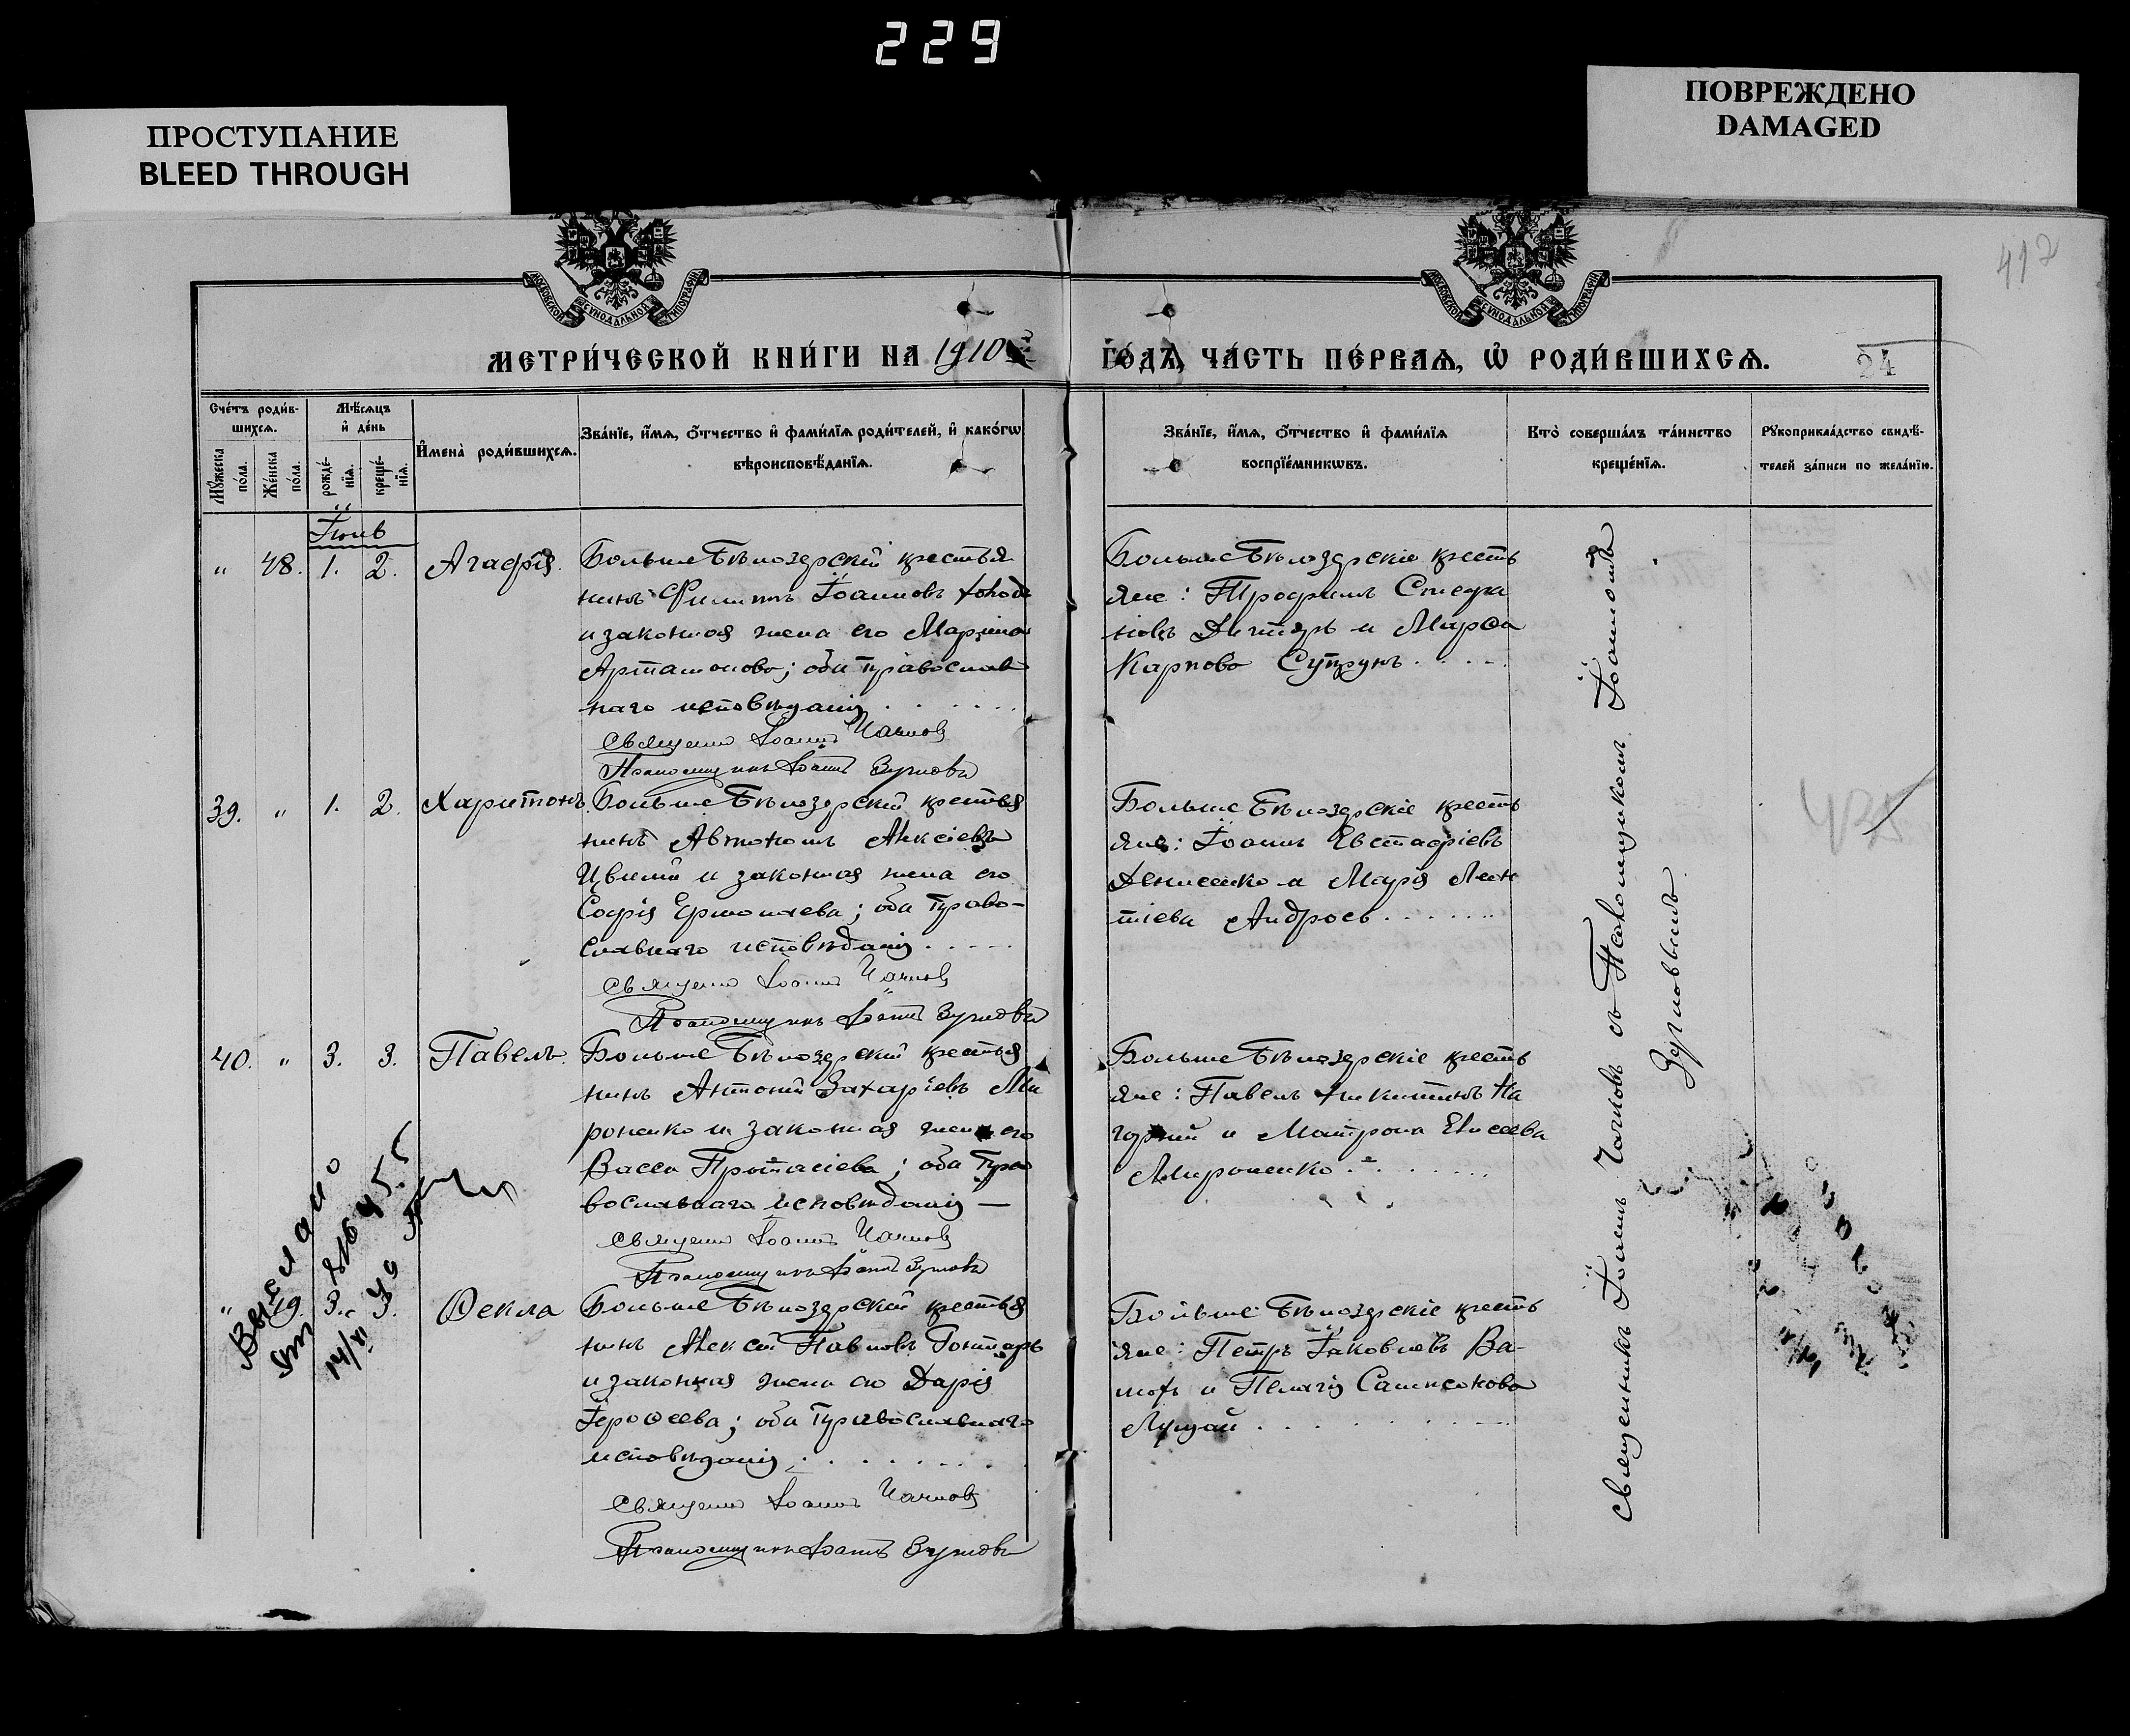 229
ПРОСТУПАНИЕ
BLEED THROUGH
ПОВРЕЖДЕНО
DAMAGED
МОСКОВСКОЙ СѴНОДАЛЬНОЙ ТИПОГРАФІИ
МОСКОВСКОЙ СѴНОДАЛЬНОЙ ТИПОГРАФІИ
417
МЕТРИ́ЧЕСКОЙ КНИ́ГИ НА 1910
ГО́ДЪ, ЧА́СТЬ ПЕ́РВАѦ, Ѡ҆ РОДИ́ВШИХСѦ.
24
Сче́тъ роди́в-
шихсѧ.
Мꙋ́жеска по́ла.
Же́нска по́ла.
Мѣ́сѧцъ
и҆ де́нь
рожде́-
нїѧ.
креще́-
нїѧ.
И҆мена̀ роди́вшихсѧ.
Зва́нїе, и҆́мѧ, ѻ҆́тчество и҆ фами́лїѧ роди́телей, и҆ како́гѡ
вѣроисповѣ́данїѧ.
Зва́нїе, и҆́мѧ, ѻ҆́тчество и҆ фами́лїѧ
воспрїе́мникѡвъ.
Кто̀ соверша́лъ та́инство
креще́нїѧ.
Рꙋкоприкла́дство свидѣ́-
телей за́писи по жела́нїю.
Іюнь
" 48. 1. 2. Агафія.
Больше Бѣлозерскій крестья
нинъ Филиппъ Іоанновъ
и законная жена его Марина
Артамонова; оба православ
наго исповѣданія . . . . .
Священ Іоаннъ Чачковъ
Псаломщикъ Іоаннъ Зуповъ
Больше Бѣлозерскіе кресть
яне: Трофимъ Стефа
новъ Дегтярь и Марѳа
Карпова Супрунъ . . . .
39. " 1. 2. Харитонъ
Больше Бѣлозерскій крестья
нинъ Автономъ Алексіевъ
и законная жена его
Софія Ермолаева; оба право-
славнаго исповѣданія . . . .
Священ Іоаннъ Чачковъ
Псаломщикъ Іоаннъ Зуповъ
Больше Бѣлозерскіе кресть
яне: Іоаннъ Евстафіевъ
Денисенко и Марія Леон
тіева Андрось . . . . . .
435
40. " 3. 3. Павелъ.
Больше Бѣлозерскій крестья
нинъ Антоній Захаріевъ Ми
роненко и законная жена его
Васса Протасіева; оба пра
вославнаго исповѣданія —
Священ Іоаннъ Чачковъ
Псаломщикъ Іоаннъ Зуповъ
Больше Бѣлозерскіе кресть
яне: Павелъ Никитинъ На
горный и Матрона Елисеева
Мироненко . . . . . .
Выслано
" 49. 3. 3. Ѳекла
Больше Бѣлозерскій крестья
нинъ Алексій Павловъ Гонтарь
и законная жена его Дарія
Іероѳеева; оба православнаго
исповѣданія . . . . . . .
Священ Іоаннъ Чачковъ
Псаломщикъ Іоаннъ Зуповъ
Больше Бѣлозерскіе кресть
яне: Петръ Іаковлевъ Ва-
и Пелагія Самсонова
Лущай . . . . . . .
Священникъ Іоаннъ Чачковъ съ Псаломщикомъ Іоанномъ
Зуповымъ.